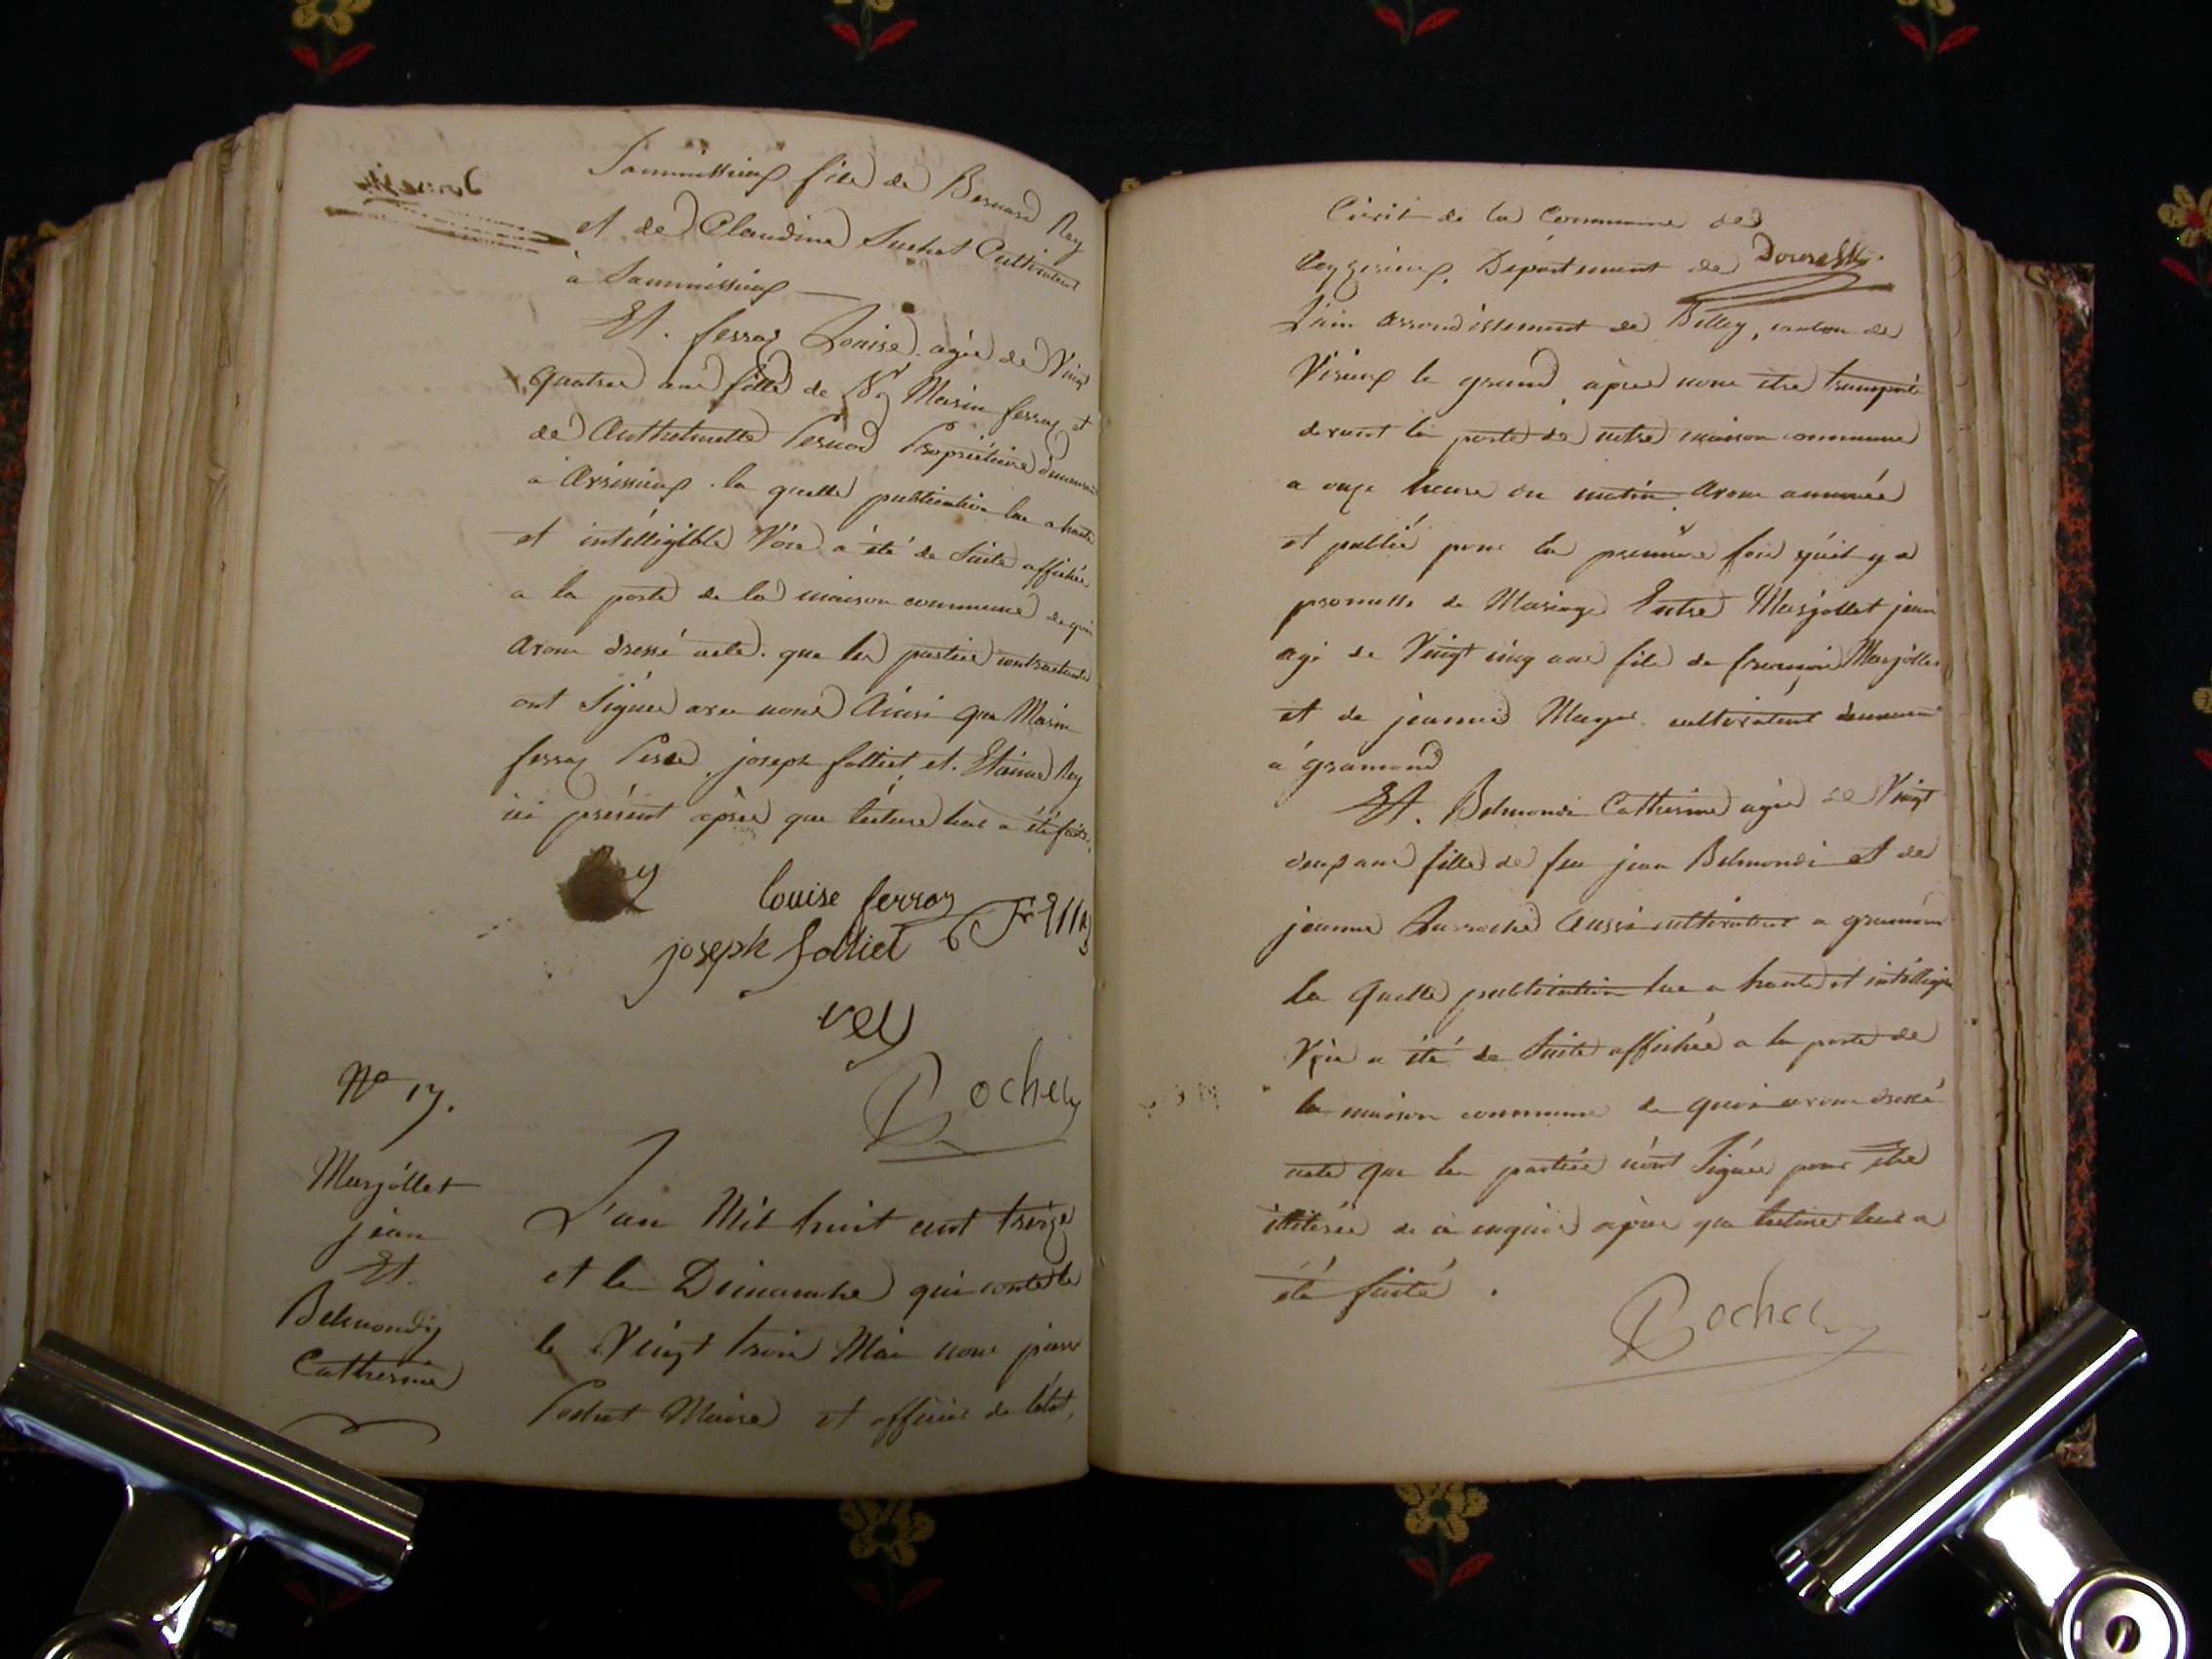 Sammissieux fils de Bernard Rey
et de Claudine Suchet Cultivateurs
à Sammissieux
Et. ferraz Louise. agée de Vingt
quatre ans fille de Mr Marin ferraz et
de Anthelmette Pernod Propriétaire demeurant
à Arvissieux. la quelle publication lue a haute
et intélligible Voie a été de Suite affichée
a la porte de la maison commune de quoi
avons dressé acte. que les parties contractantes
ont Signés avec nous Ainsi que Marin
ferraz Perre, joseph folliet et. Etienne Rey
ici présent après que lécture leur a été faite.
Rey
louise ferraz
joseph folliet
rey
Rochey
No 17.
Marjollet
jean
Et.
Belmondy
Catherine
L'an Mil huit cent treize
et le Dimanche qui conte le
le Vingt trois Mai nous
Maire et officier de l'état,
Civil de la Commune de
Ceyzerieux, Département de
L'ain Arrondissement de Belley, canton de
Virieux le grand, après nous être transporté
devant la porte de notre maison commune
a onze heure du matin, Avons annoncée
et publié pour la première fois qu'il y a
promesse de Mariage Entre Marjollet jean
agé de Vingt cinq ans fils de françois Marjollet
et de jeanne cultivateurs demeurant
à gramond
Et. Belmondi Catherine agée de Vingt
deux ans fille de feu jean Belmondi et de
jeanne Aussi cultivateurs a gramond
la quelle publication lue a haute et intélligible
Voie a été de Suite affichée a la porte de
la maison commune de quoi avons dressé
acte que les parties n'ont Signés pour être
illitérés de ce enquis après que lecture leur a
été faite.
Rochey